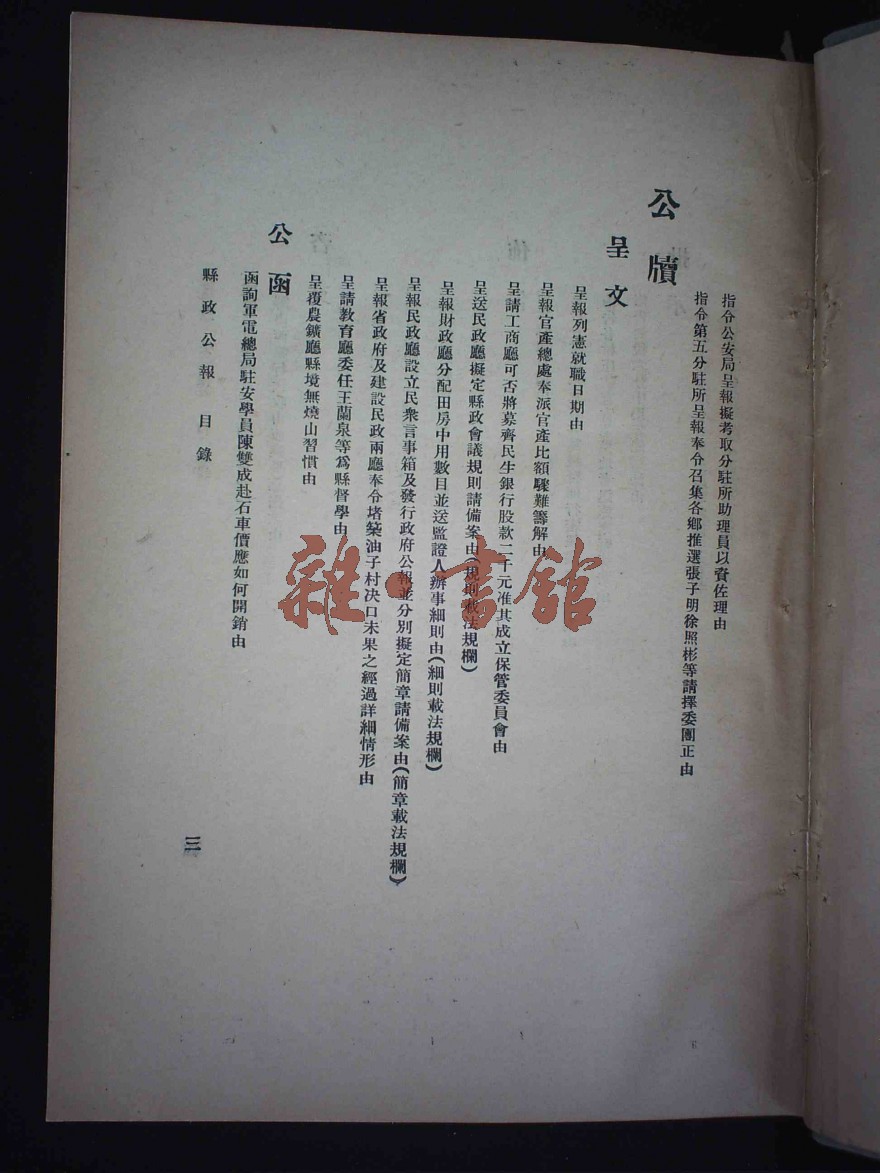 指令公安局呈報擬考取分駐所助理員以資佐理由
指令第五分駐所呈報奉令召集各鄉推選張子明徐照彬等請擇委團正由
公牘
呈文
呈報列憲就職日期由
呈報官產總處奉派官產比額驟難籌解由
呈請工商廳可否將募齊民生銀行股款二千元准其成立保管委員會由
呈送民政廳擬定縣政會議規則請備案由(規則載法規欄)
呈報財政廳分配田房中用數目並送監證人辦事細則由(細則載法規欄)
呈報民政廳設立民衆言事箱及發行政府公報並分別擬定簡章請備案由(簡章載法規欄)
呈報省政府及建設民政兩廳奉令堵築油子村决口未果之經過詳細情形由
呈請教育廳委任王蘭泉等爲縣督學由
呈覆農鑛廳縣境無燒山習慣由
公函
函詢軍電總局駐安學員陳雙成赴石車價應如何開銷由
縣政公報 目錄
三
雜·書館